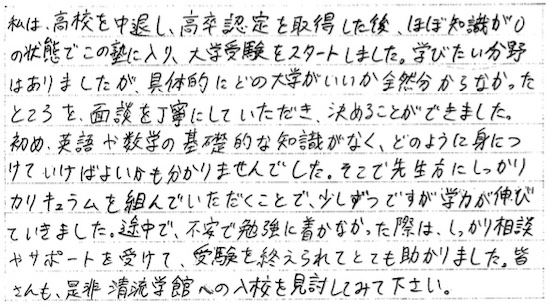 私は、高校を中退し、高卒認定を取得した後、ほぼ知識が0
の状態でこの塾に入り、大学受験をスタートしました。学びたい分野
はありましたが、具体的にどの大学がいいか全然分からなかった
ところを、面談を丁寧にしていただき、決めることができました。
初め、英語や数学の基礎的な知識がなく、どのように身につ
けていけばよいかも分かりませんでした。そこで先生方にしっかり
カリキュラムを組んでいただくことで、少しずつですが学力が伸び
ていきました。途中で、不安で勉強に着かなかった際は、しっかり相談
やサポートを受けて、受験を終えられてとても助かりました。皆
さんも、是非清流学館への入校を見討してみて下さい。